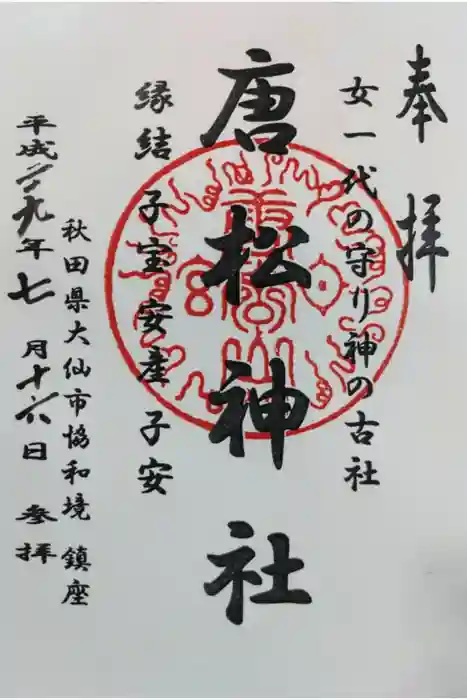 奉拝
女一代の守り神の古社
唐松神社
縁結 子宝安産子安
秋田県大仙市協和境 鎮座
平成二十九年七月十六日 参拝